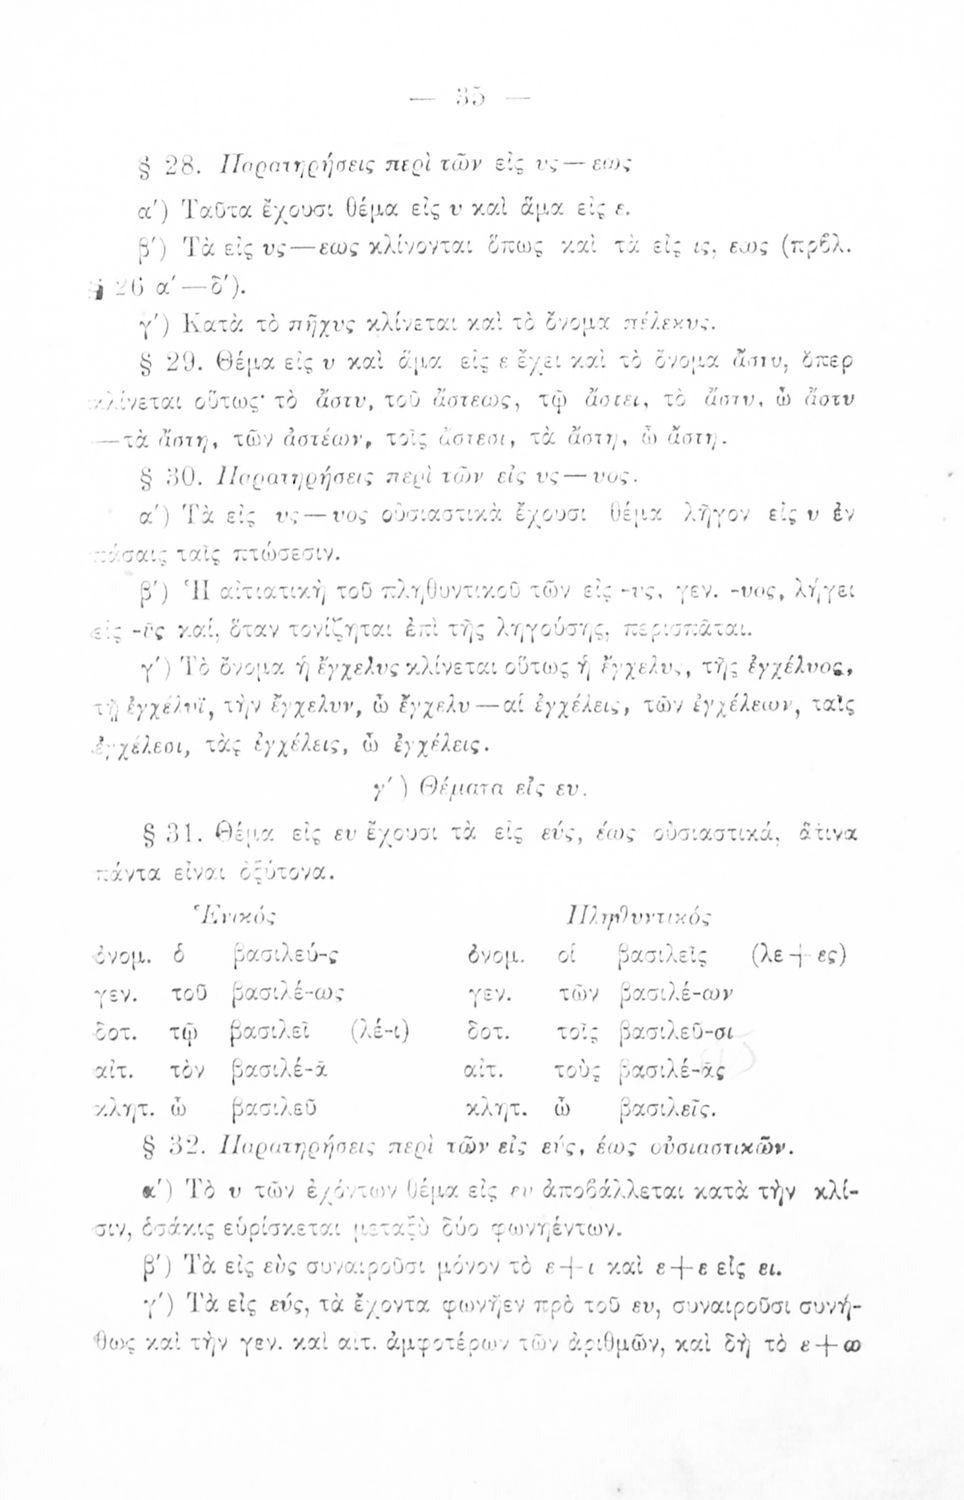 — 35 —
§ 28. Παρατηρήσεις περὶ τῶν εἰς υς — εως
α΄) Ταῦτα ἔχουσι θέμα εἰς υ καὶ ἅμα εἰς ε.
β΄) Τὰ εἰς υς — εως κλίνονται ὅπως καὶ τὰ εἰς ις, εως (πρβλ.
§ 26 α΄ — δ΄).
γ΄) Κατὰ τὸ πῆχυς κλίνεται καὶ τὸ ὄνομα πέλεκυς.
§ 29. Θέμα εἰς υ καὶ ἅμα εἰς ε ἔχει καὶ τὸ ὄνομα ἄστυ, ὅπερ
κλίνεται οὕτως· τὸ ἄστυ, τοῦ ἄστεως, τῷ ἄστει, τὸ ἄστυ, ὦ ἄστυ
— τὰ ἄστη, τῶν ἀστέων, τοῖς ἄστεσι, τὰ ἄστη, ὦ ἄστη.
§ 30. Παρατηρήσεις περὶ τῶν εἰς υς — υος.
α΄) Τὰ εἰς υς — υος οὐσιαστικὰ ἔχουσι θέμα λῆγον εἰς υ ἐν
πάσαις ταῖς πτώσεσιν.
β΄) Ἡ αἰτιατικὴ τοῦ πληθυντικοῦ τῶν εἰς -υς, γεν. -υος, λήγει
εἰς -ῦς καί, ὅταν τονίζηται ἐπὶ τῆς ληγούσης, περισπᾶται.
γ΄) Τὸ ὄνομα ἡ ἔγχελυς κλίνεται οὕτως ἡ ἔγχελυς, τῆς ἐγχέλυος,
τῇ ἐγχέλυϊ, τὴν ἔγχελυν, ὦ ἔγχελυ — αἱ ἐγχέλεις, τῶν ἐγχέλεων, ταῖς
ἐγχέλεσι, τὰς ἐγχέλεις, ὦ ἐγχέλεις.
γ΄) Θέματα εἰς ευ.
§ 31. Θέμα εἰς ευ ἔχουσι τὰ εἰς εύς, έως οὐσιαστικά, ἅτινα
πάντα εἶναι ὀξύτονα.
Ἑνικός Πληθυντικός
ὀνομ. ὁ βασιλεύ-ς ὀνομ. οἱ βασιλεῖς (λε + ες)
γεν. τοῦ βασιλέ-ως γεν. τῶν βασιλέ-ων
δοτ. τῷ βασιλεῖ (λέ-ι) δοτ. τοῖς βασιλεῦ-σι
αἰτ. τὸν βασιλέ-ᾱ αἰτ. τοὺς βασιλέ-ᾱς
κλητ. ὦ βασιλεῦ κλητ. ὦ βασιλεῖς.
§ 32. Παρατηρήσεις περὶ τῶν εἰς εύς, έως οὐσιαστικῶν.
α΄) Τὸ υ τῶν ἐχόντων θέμα εἰς ευ ἀποβάλλεται κατὰ τὴν κλί-
σιν, ὁσάκις εὑρίσκεται μεταξὺ δύο φωνηέντων.
β΄) Τὰ εἰς εὺς συναιροῦσι μόνον τὸ ε + ι καὶ ε + ε εἰς ει.
γ΄) Τὰ εἰς εύς, τὰ ἔχοντα φωνῆεν πρὸ τοῦ ευ, συναιροῦσι συνή-
θως καὶ τὴν γεν. καὶ αἰτ. ἀμφοτέρων τῶν ἀριθμῶν, καὶ δὴ τὸ ε + ω